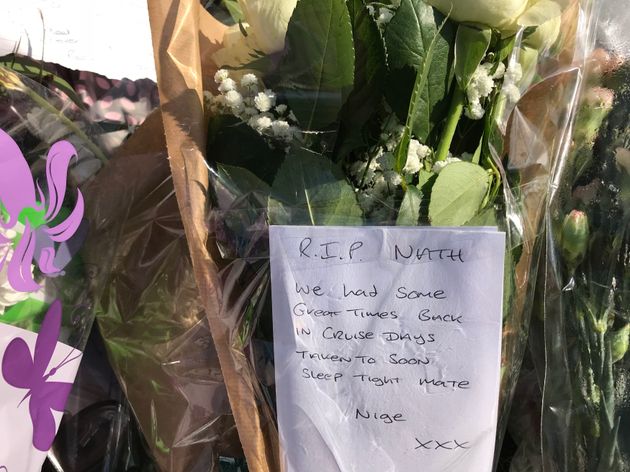 R.I.P. NATH
We had some
Great Times Back
in Cruise Days
Taken to soon
Sleep Tight mate
Nige
xxx